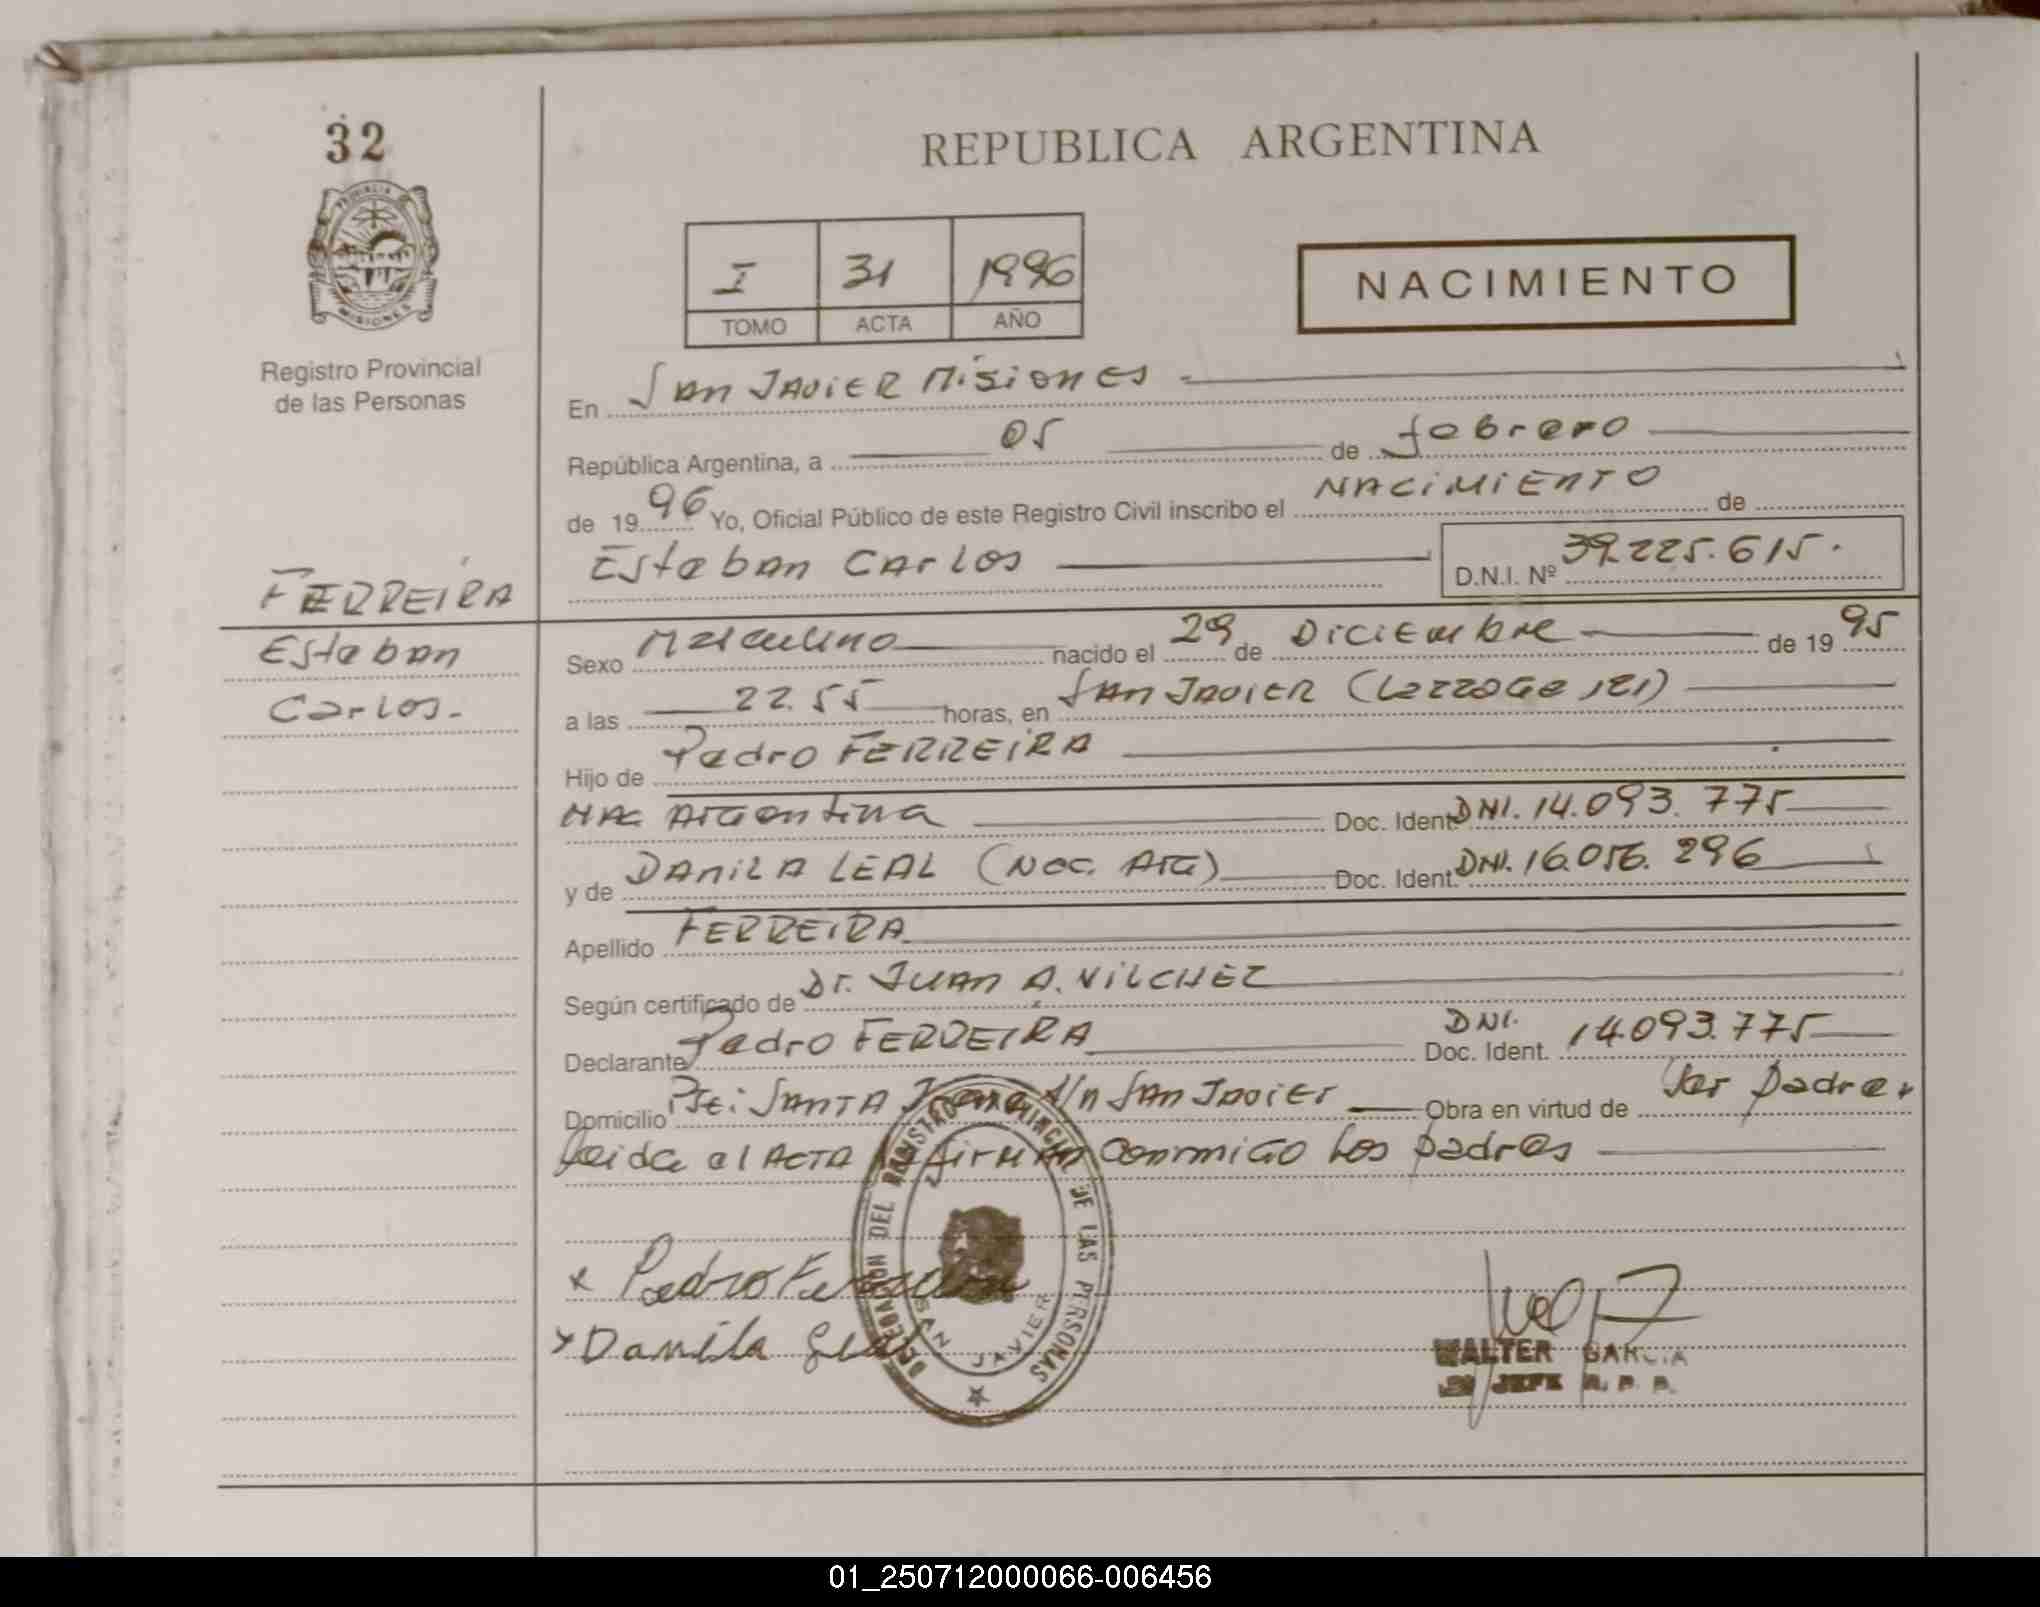 32
PROVINCIA
MISIONES
Registro Provincial
de las Personas
FERREIRA
Esteban
Carlos.-
REPUBLICA ARGENTINA
I 31 1996
TOMO ACTA AÑO
NACIMIENTO
En San Javier Misiones
República Argentina, a 05 de febrero
de 1996 Yo, Oficial Público de este Registro Civil inscribo el NACIMIENTO de
Esteban Carlos D.N.I. Nº 39.225.615.
Sexo Masculino nacido el 29 de Diciembre de 1995
a las 22.55 horas, en San Javier
Hijo de Pedro FERREIRA
Nac. Argentina Doc. Ident. DNI. 14.093.775
y de DANILA LEAL (Nac. Arg) Doc. Ident. DNI. 16.056.296
Apellido FERREIRA
Según certificado de Dr. Juan A. VILCHEZ
Declarante Pedro FERREIRA Doc. Ident. DNI. 14.093.775
Domicilio SANTA s/n San Javier Obra en virtud de Ser padre.
Leida el ACTA firman conmigo los padres
x Pedro Ferreira
x Danila Leal
DELEGACION DEL REGISTRO PROVINCIAL DE LAS PERSONAS
SAN JAVIER
WALTER GARCIA
JEFE R. P. P.
01_250712000066-006456